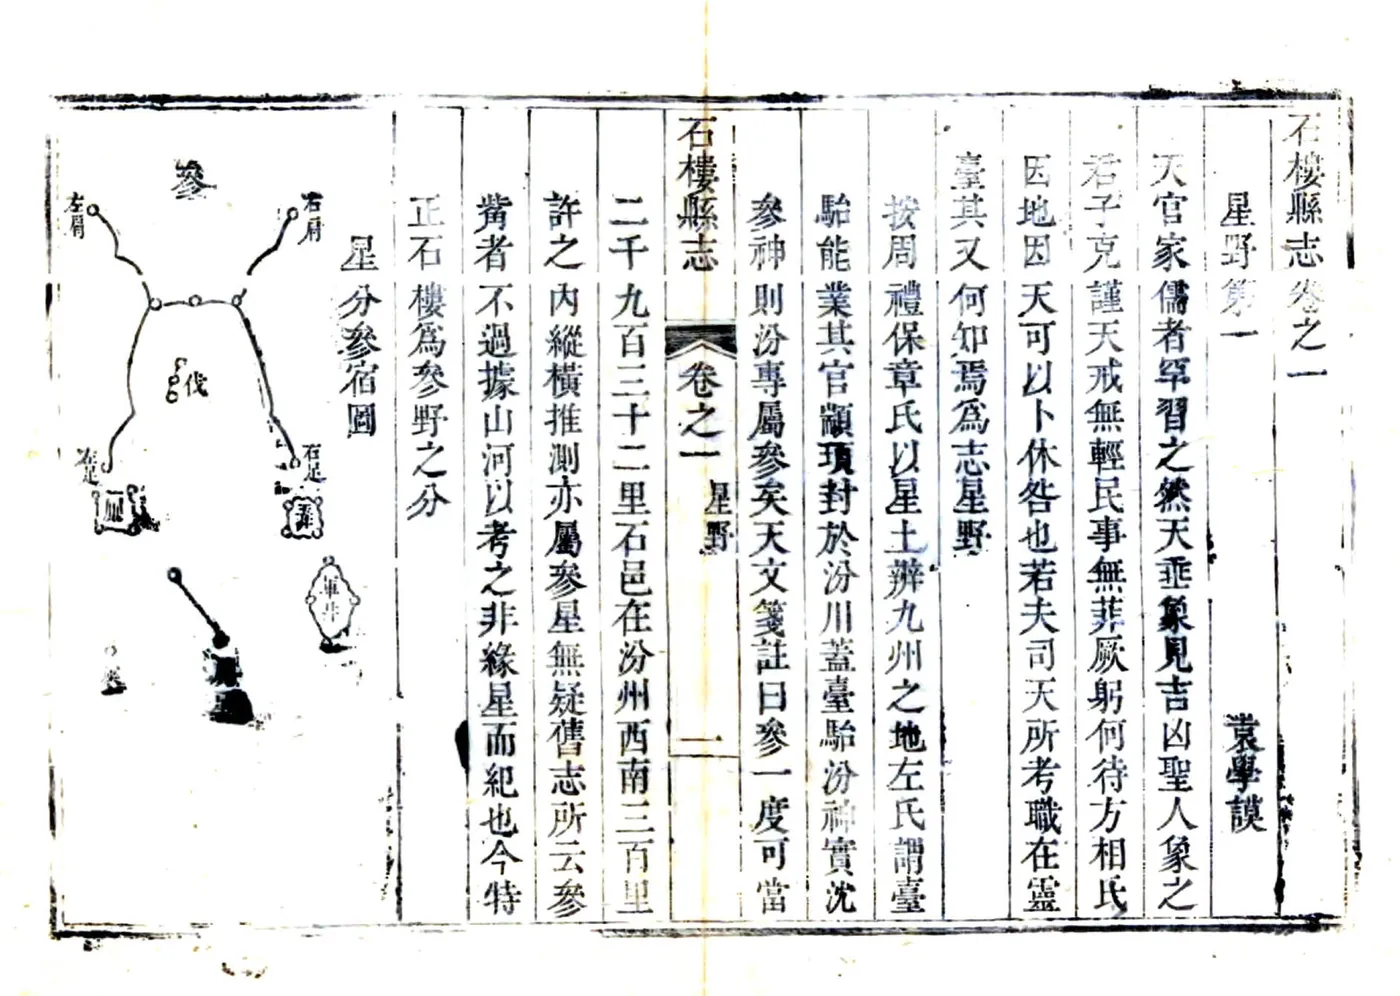 石樓縣志卷之一
星野第一
袁學謨
天官家儒者罕習之然天垂象見吉凶聖人象之
君子克謹天戒無輕民事無菲厥躬何待方相氏
因地因天可以卜休咎也若夫司天所考職在靈
臺其又何知焉為志星野
按周禮保章氏以星土辨九州之地左氏謂臺
駘能業其官顓頊封於汾川蓋臺駘汾神實沈
參神則汾專屬參矣天文箋註曰參一度可當
石樓縣志
卷之一
星野
一
二千九百三十二里石邑在汾州西南三百里
許之內縱橫推測亦屬參星無疑舊志所云參
觜者不過據山河以考之非緣星而紀也今特
正石樓為參野之分
星分參宿圖
參
右肩
左肩
伐
右足
左足
軍井